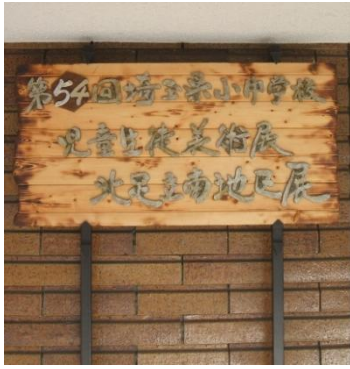 第54回埼玉県小中学校
児童生徒美術展
北足立南地区展